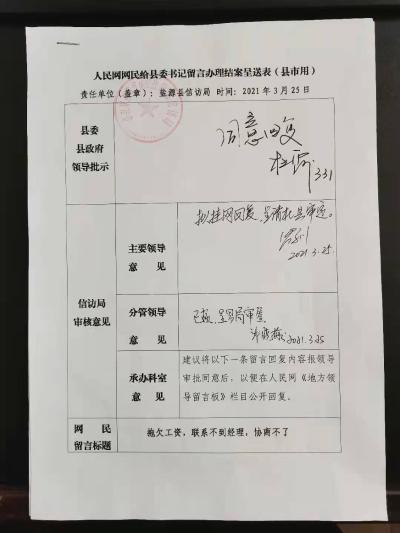 人民网网民给县委书记留言办理结案呈送表（县市用）
责任单位（盖章）：盐源县信访局 时间：2021年3月25日
县委
县政府
领导批示
同意回复
3.31
信访局
审核意见
主要领导
意 见
拟挂网回复，呈请杜县审定。
2021.3.25.
分管领导
意 见
已核，呈罗局审签
2021.3.25
承办科室
意 见
建议将以下一条留言回复内容报领导
审批同意后，以便在人民网《地方领
导留言板》栏目公开回复。
网 民
留言标题
拖欠工资，联系不到经理，协商不了